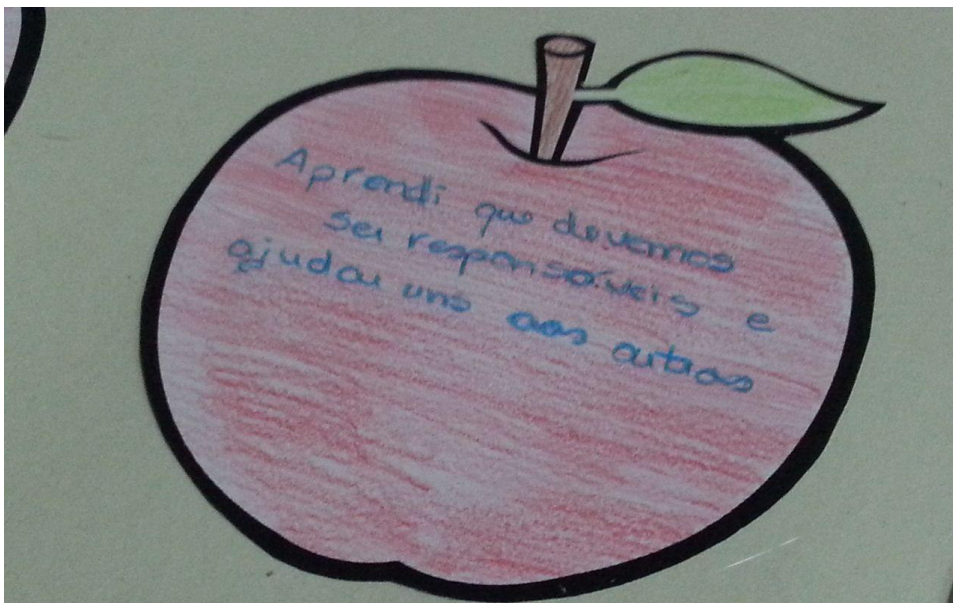 Aprendi que devemos
ser responsáveis e
ajudar uns aos outros